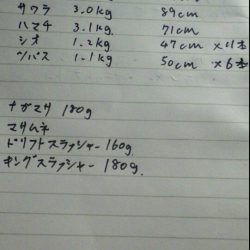 サワラ 3.0kg 89cm
ハマチ 3.1kg 71cm
シオ 1.2kg 47cm ×4本
ツバス 1.1kg 50cm ×6本
ナガマサ 180g
マサムネ
ドリフトスラッシャー 160g
キングスラッシャー 180g.